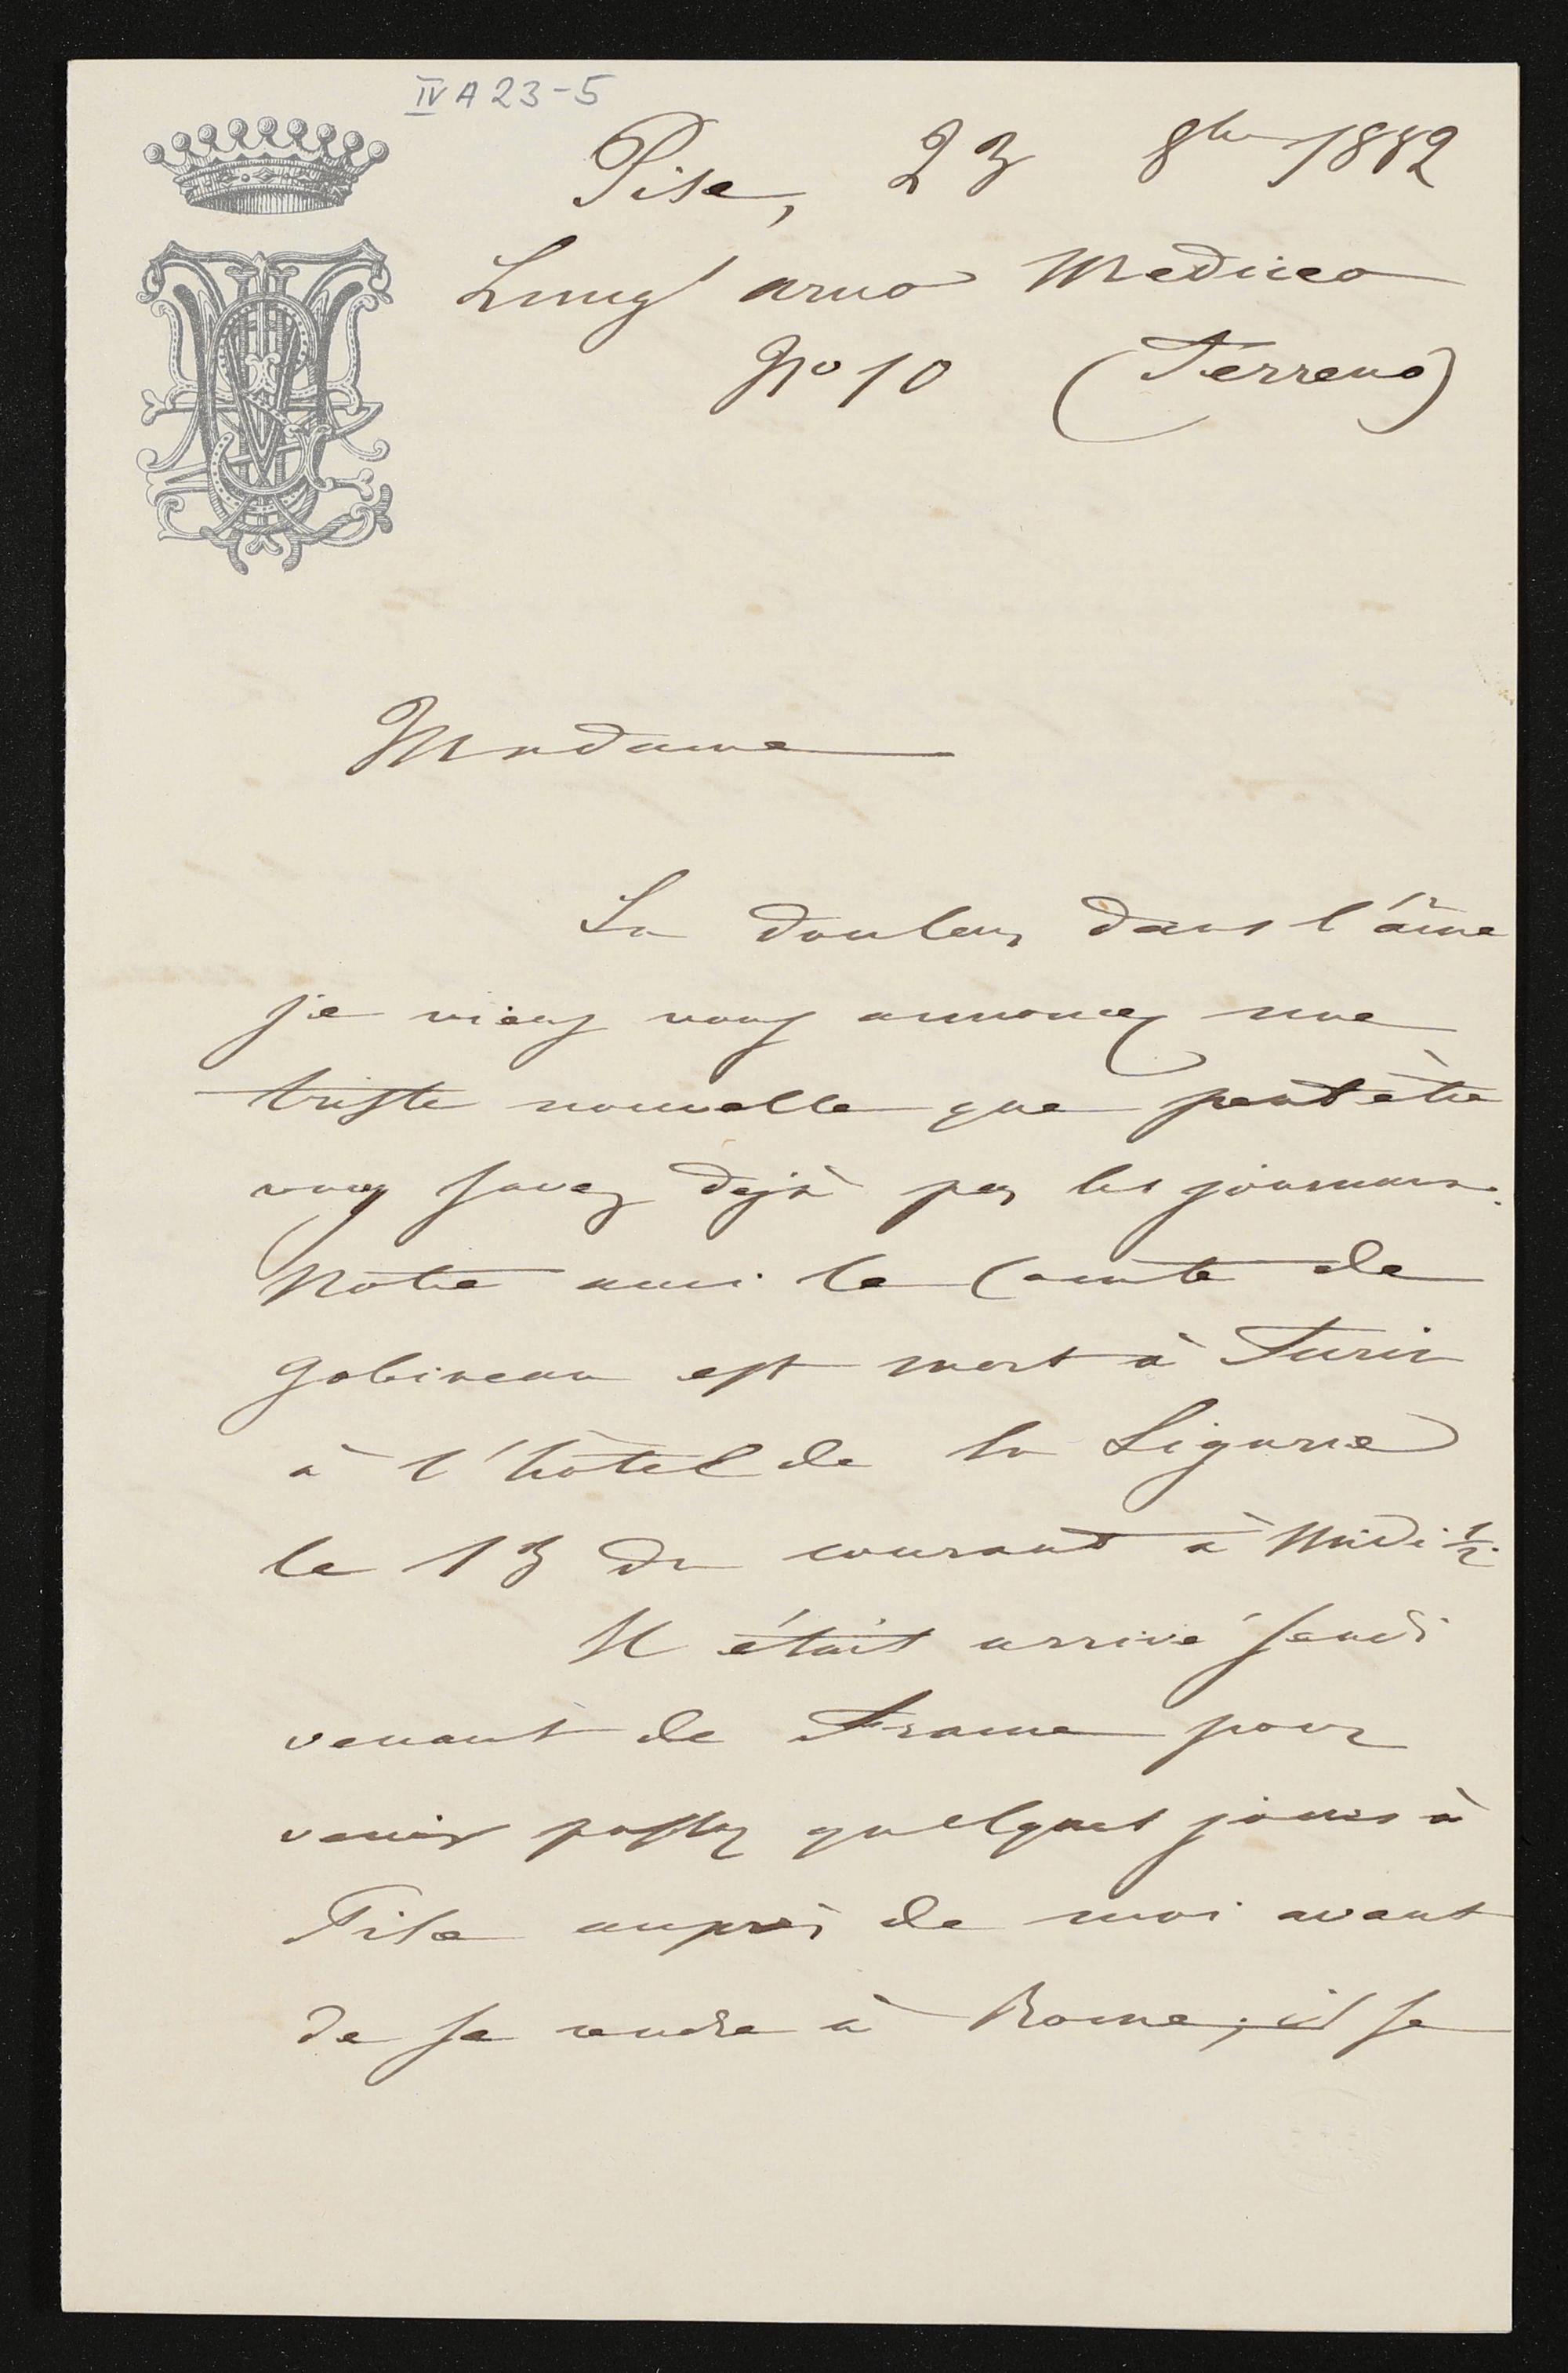 IV A 23-5
Pise, 23 8bre 1882
Lung'arno Mediceo
No 10 (Terreno)
Madame
La douleur dans l'âme
je viens vous annoncer une
triste nouvelle que peut être
vous savez dejà par les journaux.
Notre ami le Comte de
Gobineau est mort à Turin
à l'hôtel de la Ligurie
le 13 du courant à midi ½.
Il était arrivé jeudi
venant de France pour
venir passer quelques jours à
Pise auprès de moi avant
de se rendre à Rome, il se